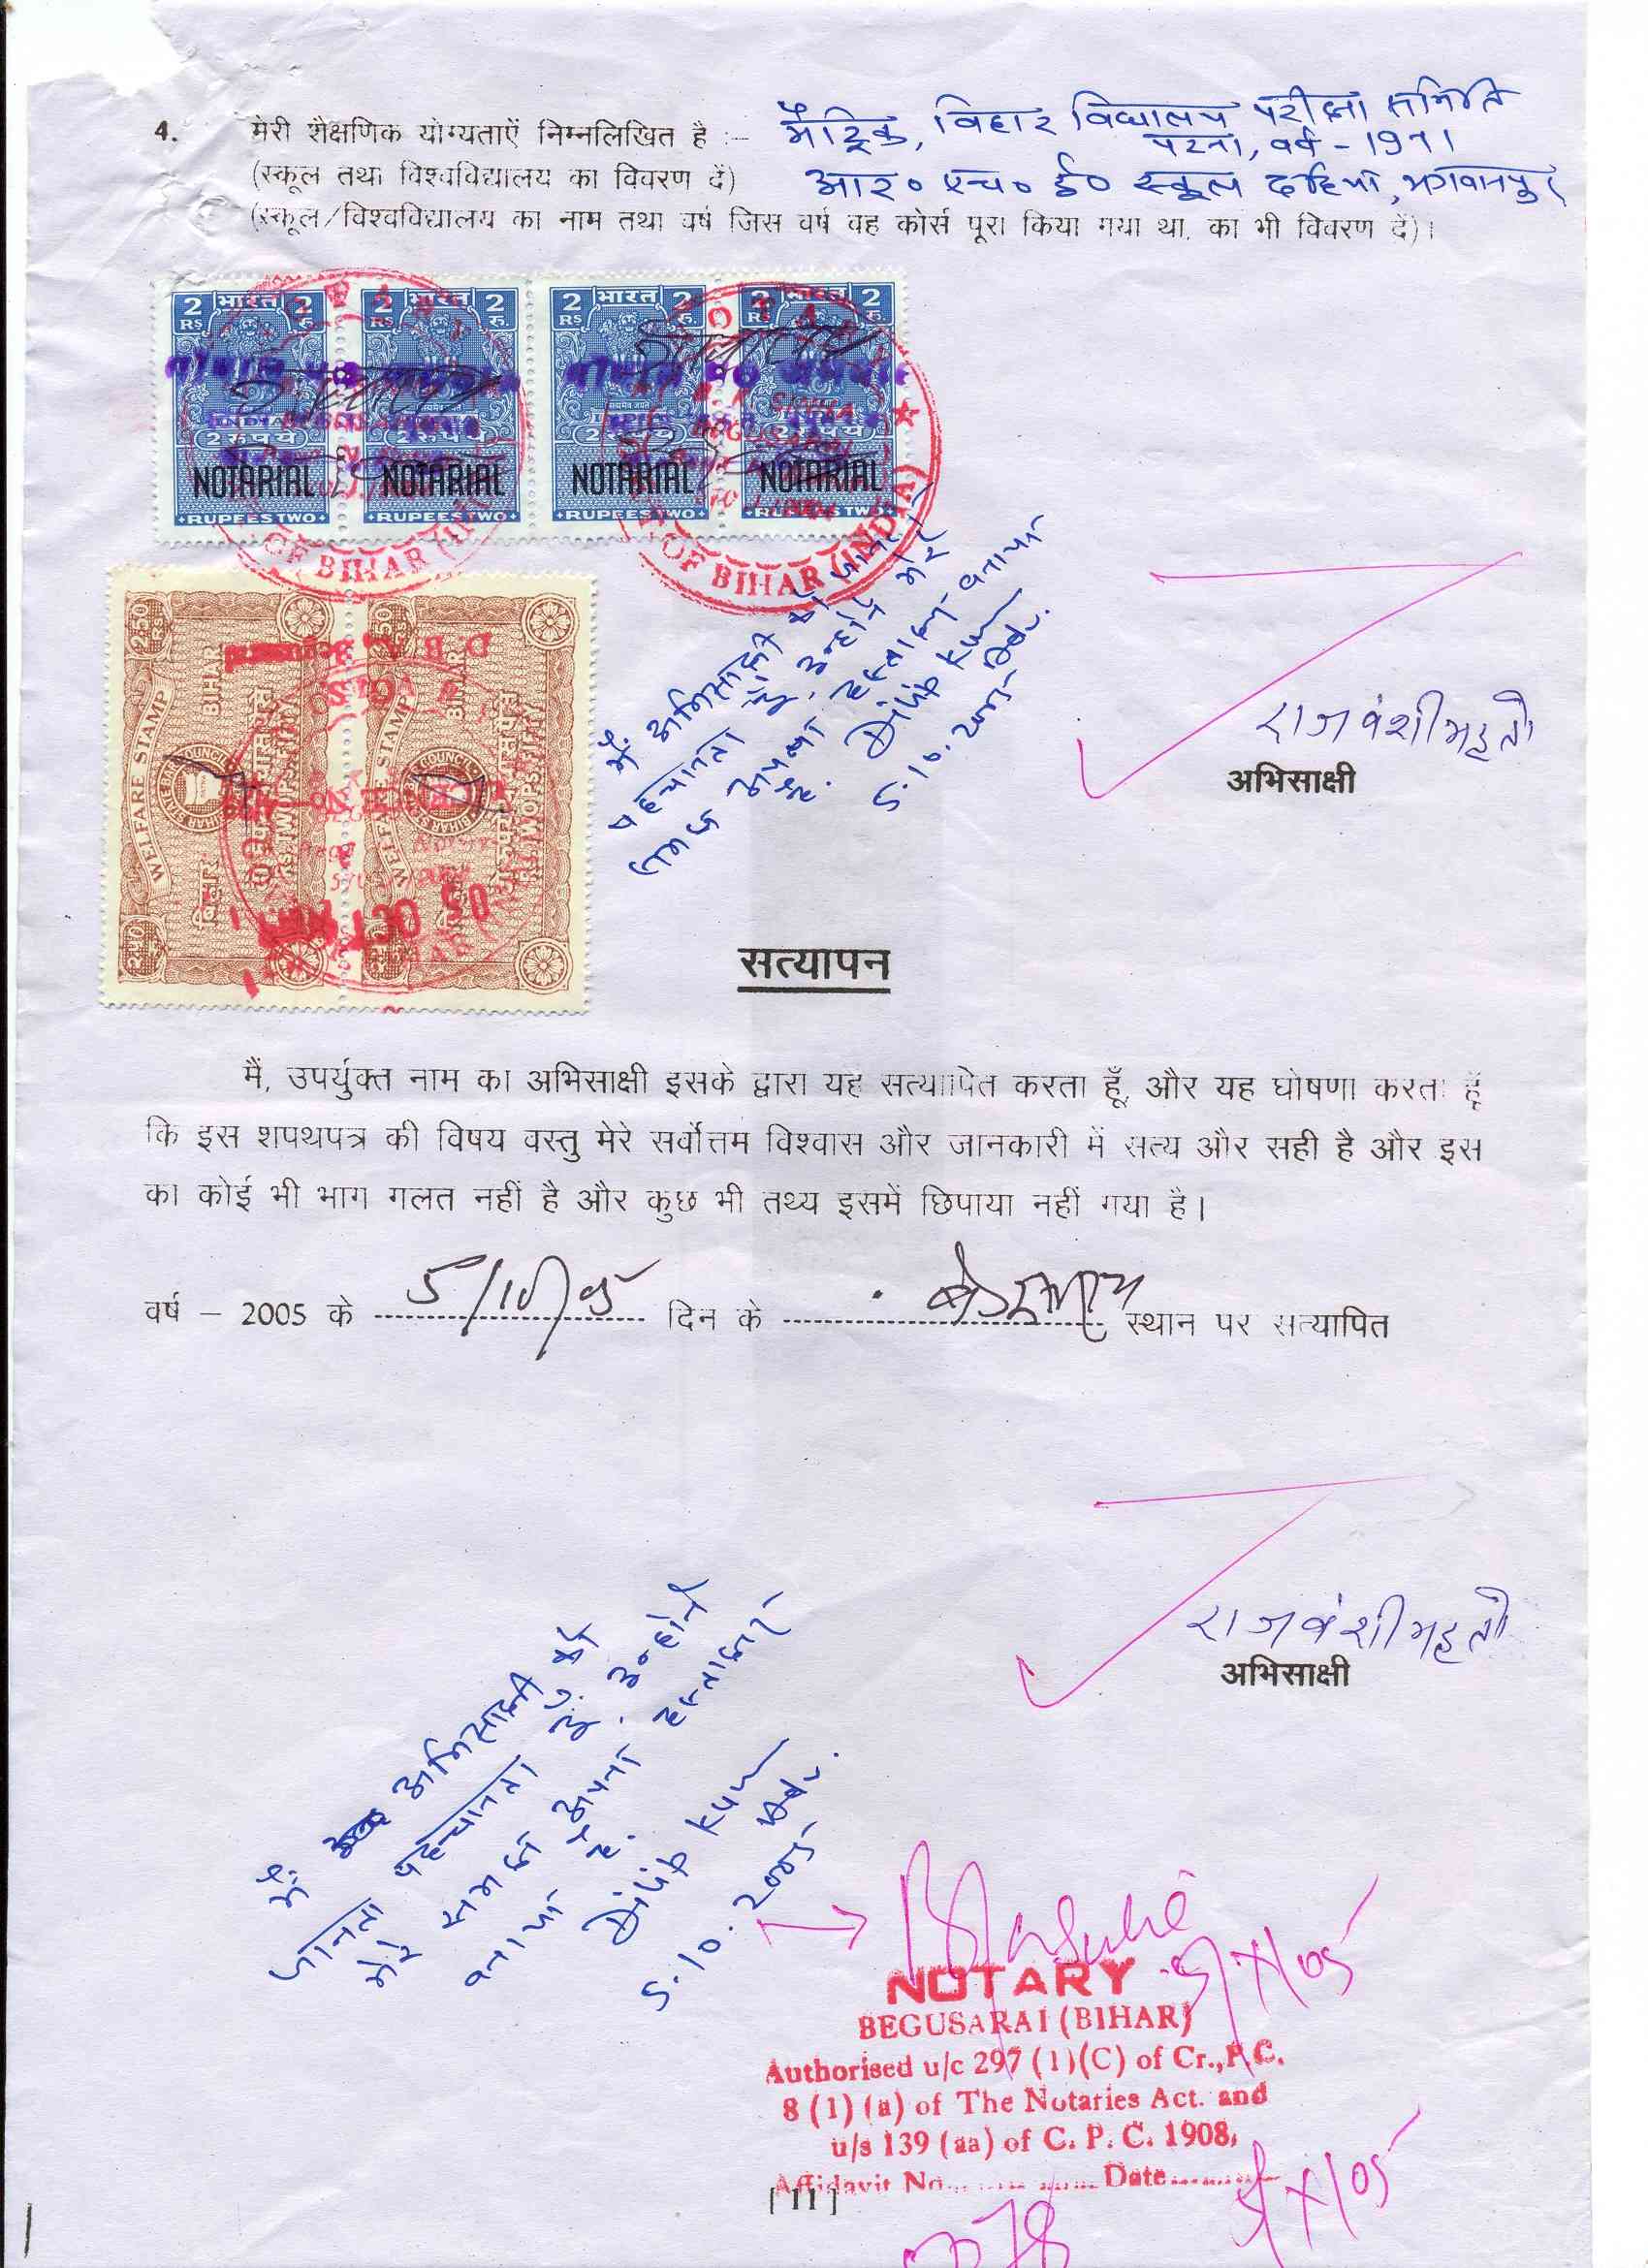 4. मेरी शैक्षणिक योग्यताऐं निम्नलिखित है :- मैट्रिक, विहार विद्यालय परीक्षा समिति
पटना, वर्ष - 1971
(स्कूल तथा विश्वविद्यालय का विवरण दें) आर० एच० ई० स्कूल दहिया, भगवानपुर
(स्कूल/विश्वविद्यालय का नाम तथा वर्ष जिस वर्ष वह कोर्स पूरा किया गया था, का भी विवरण दें)।
2 भारत 2 2 भारत 2 2 भारत 2 2 भारत 2
RS रु. RS रु. RS रु. RS रु.
2 रुपये 2 रुपये 2 रुपये 2 रुपये
NOTARIAL NOTARIAL NOTARIAL NOTARIAL
RUPEES TWO RUPEES TWO RUPEES TWO RUPEES TWO
OF BIHAR OF BIHAR (INDIA)
WELFARE STAMP BIHAR WELFARE STAMP BIHAR
बिहार
05 OCT
मैं अभिसाक्षी को जानता
पहचानता हूँ, उन्होंने मेरे
समक्ष अपना हस्ताक्षर बनाया
है. Dilip Kum
5.10.2005 Adv.
राजवंशी महतो
अभिसाक्षी
सत्यापन
मैं, उपर्युक्त नाम का अभिसाक्षी इसके द्वारा यह सत्यापित करता हूँ, और यह घोषणा करता हूँ
कि इस शपथपत्र की विषय वस्तु मेरे सर्वोत्तम विश्वास और जानकारी में सत्य और सही है और इस
का कोई भी भाग गलत नहीं है और कुछ भी तथ्य इसमें छिपाया नहीं गया है।
वर्ष – 2005 के 5/10/05 दिन के बेगुसराय स्थान पर सत्यापित
राजवंशी महतो
अभिसाक्षी
मैं अभिसाक्षी को
जानता पहचानता हूँ. उन्होंने
मेरे समक्ष अपना हस्ताक्षर
बनाया है.
Dilip Kum
Adv.
5.10.2005
5/X/05
NOTARY
BEGUSARAI (BIHAR)
Authorised u/c 297 (1)(C) of Cr., P.C.
8 (1) (a) of The Notaries Act. and
u/s 139 (aa) of C. P. C. 1908,
Affidavit No. Date 5/X/05
[ 11 ]